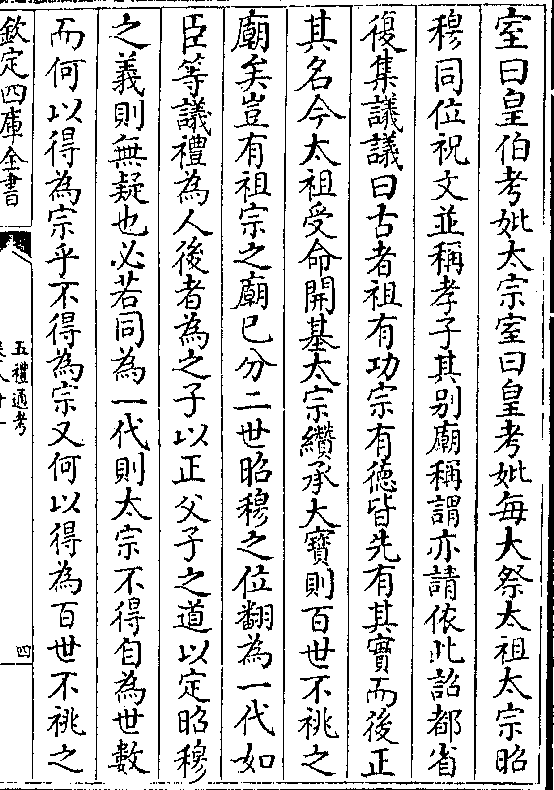 室曰皇伯考妣太宗室曰皇考妣每大祭太祖太宗昭
穆同位祝文並稱孝子其别廟稱謂亦請依此詔都省
復集議議曰古者祖有功宗有德皆先有其實而後正
其名今太祖受命開基太宗纘承大寳則百世不祧之
廟矣豈有祖宗之廟已分二世昭穆之位翻為一代如
臣等議禮為人後者為之子以正父子之道以定昭穆
之義則無疑也必若同為一代則太宗不得自為世數
而何以得為宗乎不得為宗又何以得為百世不祧之
欽定四庫全書
五禮通考
四